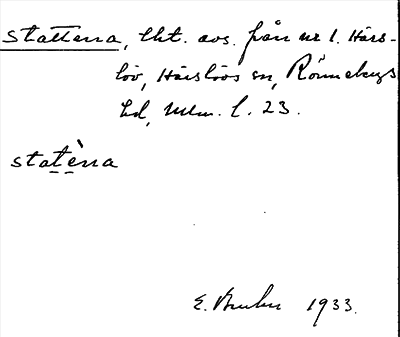 Stattena, lht. avs. från nr 1. Hårs-
löv, Hårslövs sn, Rönnebergs
hd, Mlm. l. 23.
statèna
E. Bruhn 1933.